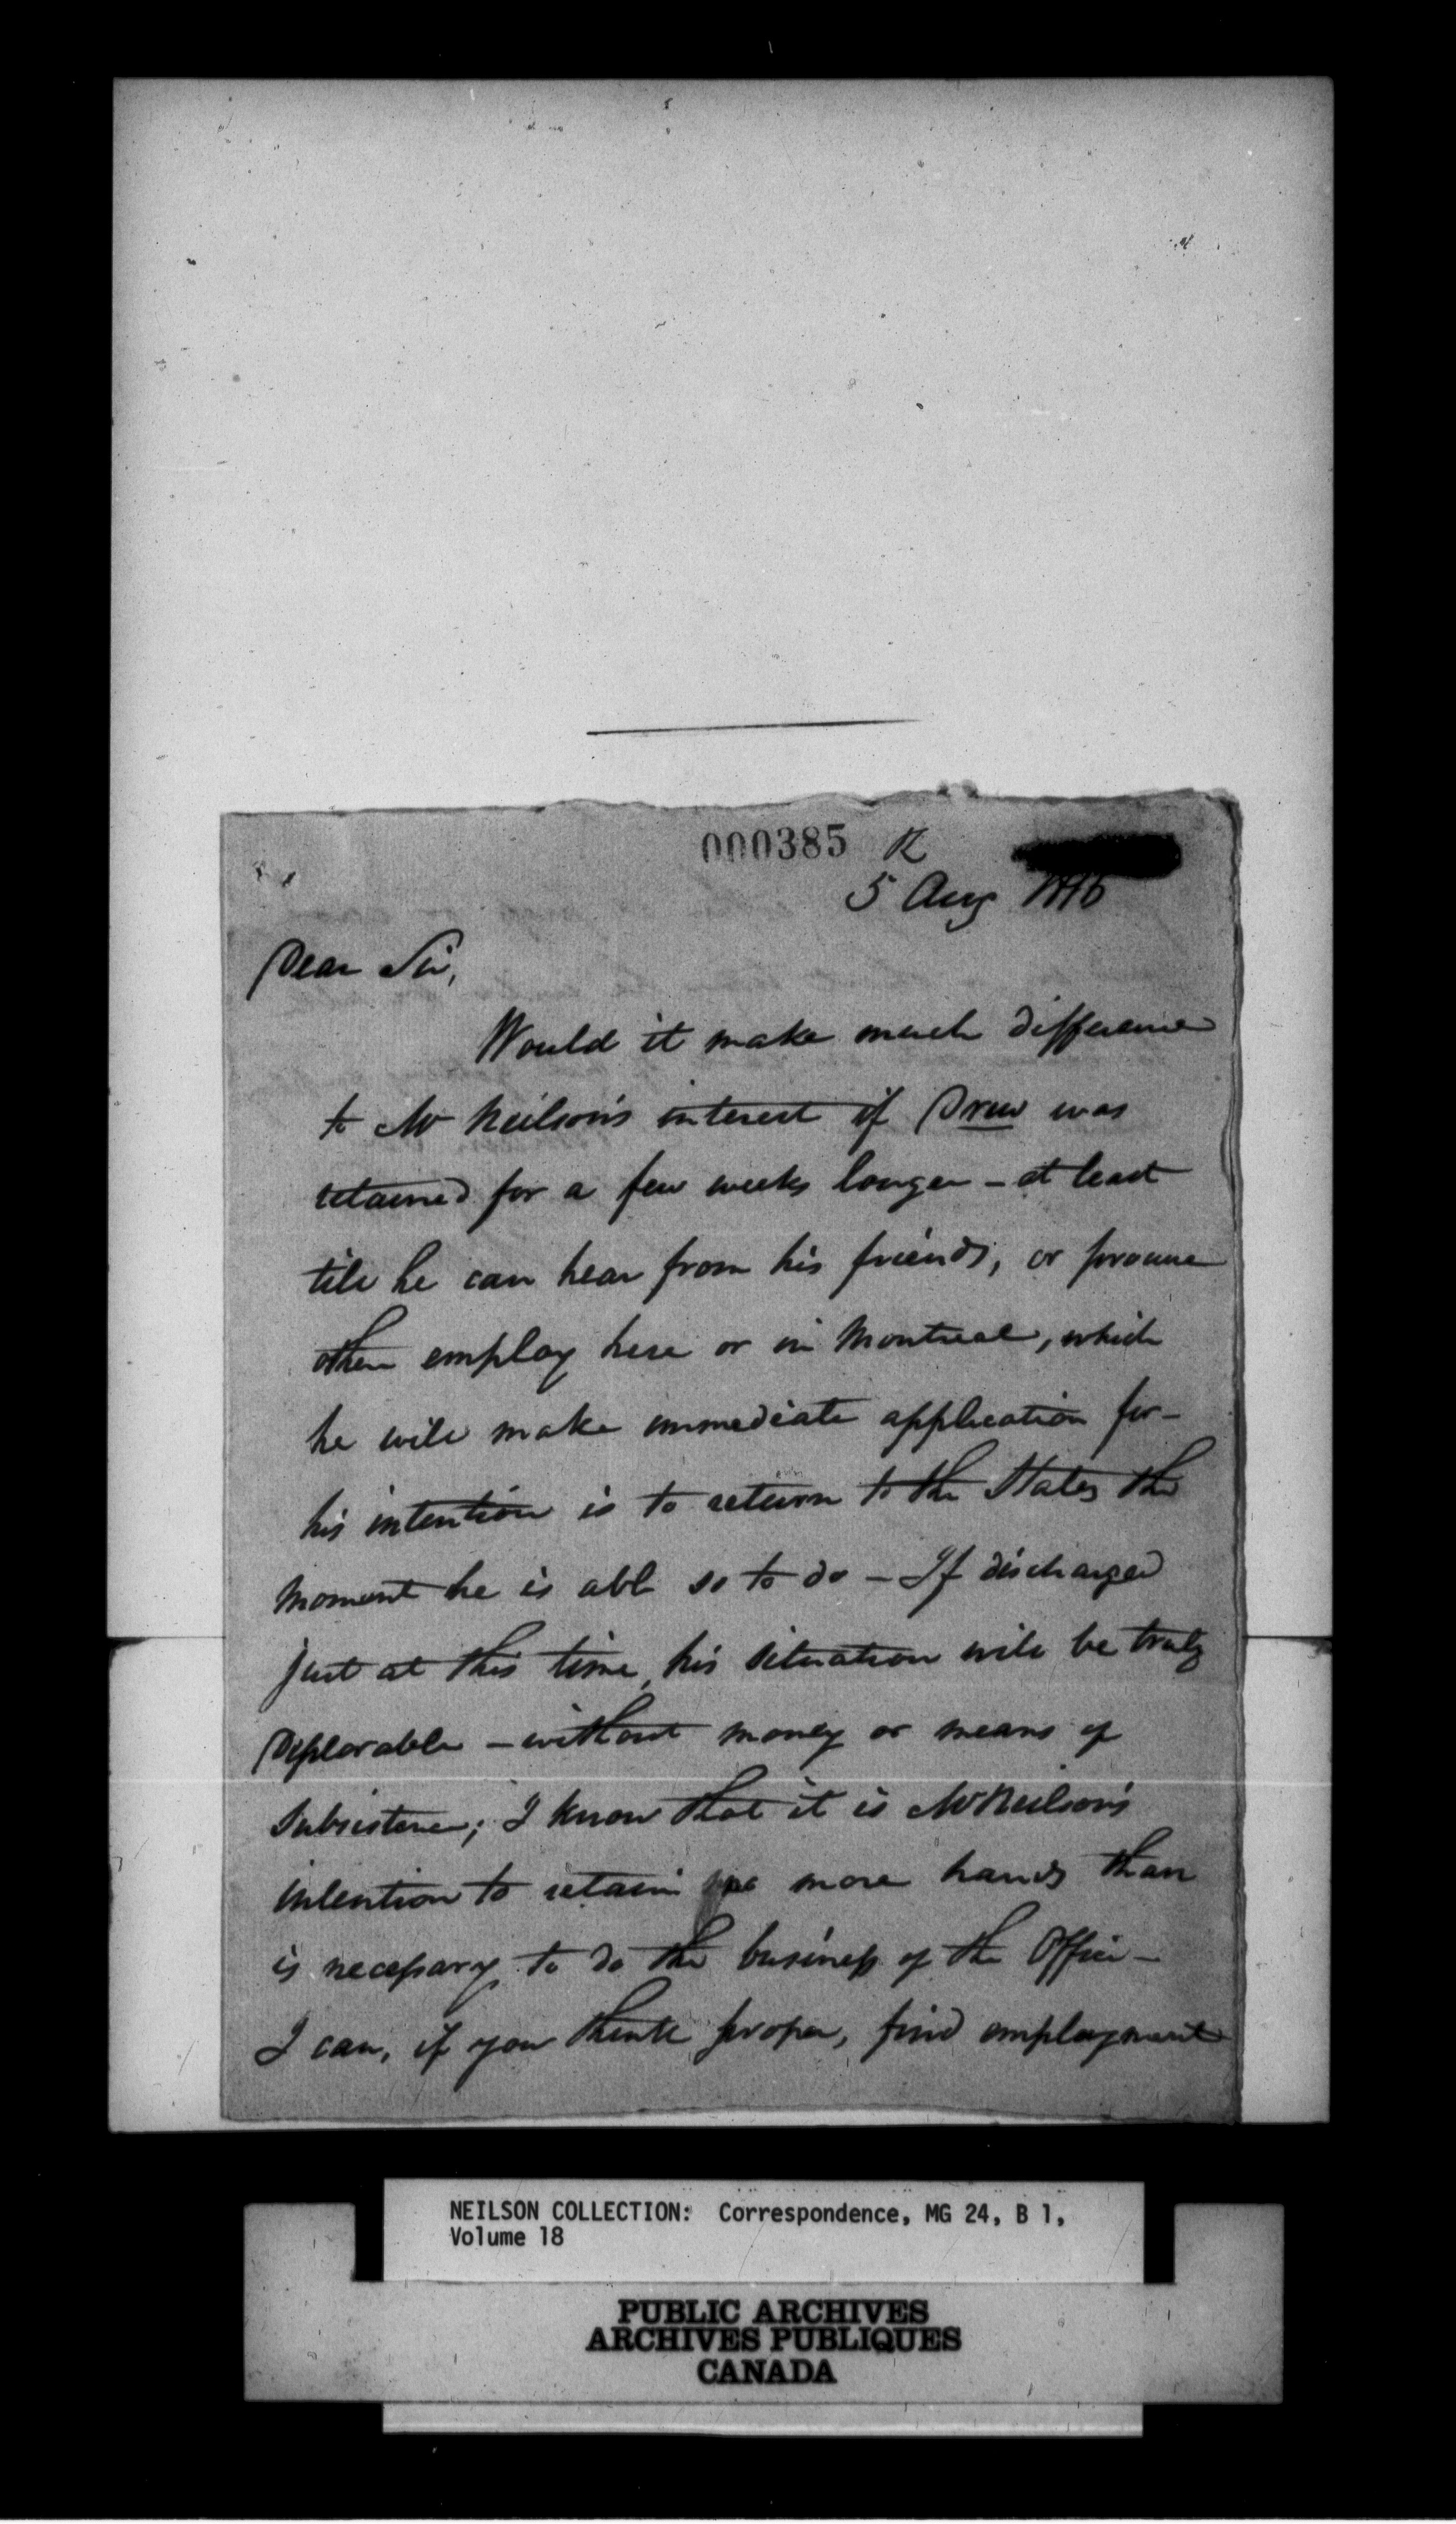 000385 R
5 Aug 1816
Dear Sir,
Would it make much difference
to Mr Neilson's interest if Drew was
retained for a few weeks longer – at least
till he can hear from his friends, or procure
other employ here or in Montreal, which
he will make immediate application for –
his intention is to return to the States the
moment he is able so to do – If discharged
just at this time, his situation will be truly
deplorable – without money or means of
subsistence; I know that it is Mr Neilson's
intention to retain no more hands than
is necessary to do the business of the Office –
I can, if you think proper, find employment
NEILSON COLLECTION: Correspondence, MG 24, B 1,
Volume 18
PUBLIC ARCHIVES
ARCHIVES PUBLIQUES
CANADA